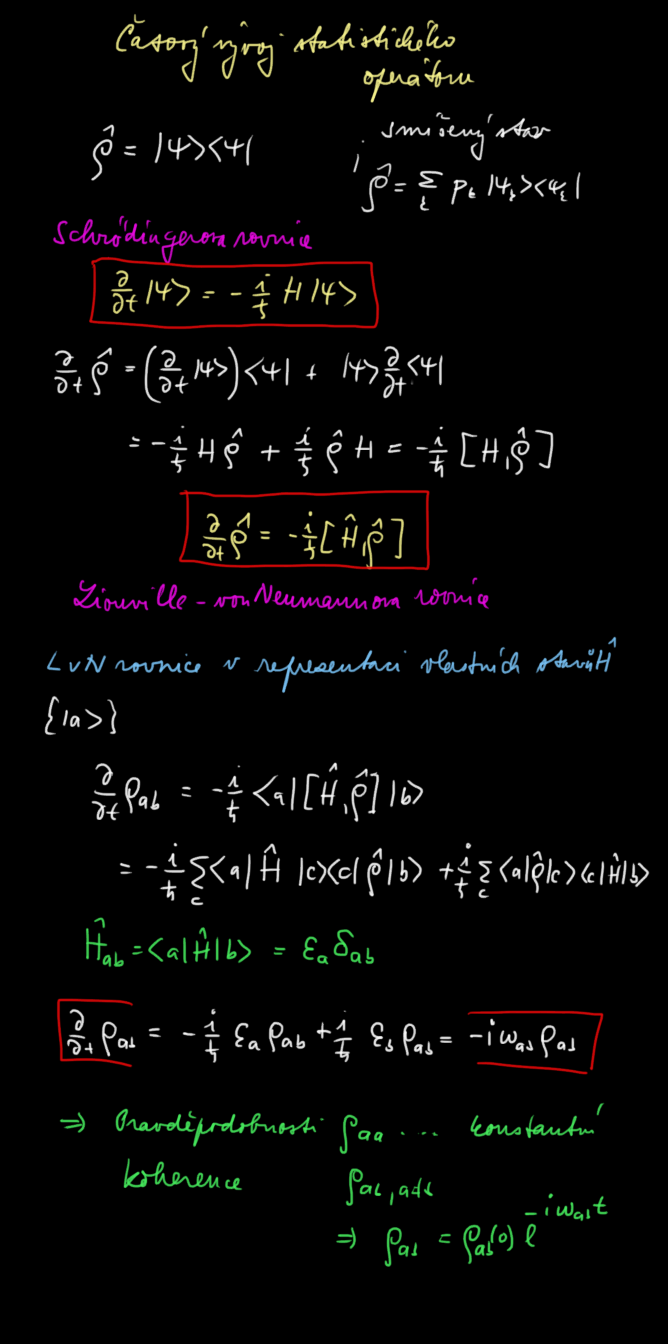 Časový vývoj statistického
operátoru
ρ̂ = |ψ><ψ|
smíšený stav
ρ̂ = Σ_i p_i |ψ_i><ψ_i|
Schrödingerova rovnice
∂/∂t |ψ> = - i/ħ H |ψ>
∂/∂t ρ̂ = (∂/∂t |ψ>) <ψ| + |ψ> ∂/∂t <ψ|
= - i/ħ H ρ̂ + i/ħ ρ̂ H = - i/ħ [H, ρ̂]
∂/∂t ρ̂ = - i/ħ [Ĥ, ρ̂]
Liouville - von Neumannova rovnice
LvN rovnice v representaci vlastních stavů Ĥ
{|a>}
∂/∂t ρ_ab = - i/ħ <a| [Ĥ, ρ̂] |b>
= - i/ħ Σ_c <a| Ĥ |c><c| ρ̂ |b> + i/ħ Σ_c <a|ρ̂|c><c|Ĥ|b>
Ĥ_ab = <a|Ĥ|b> = ε_a δ_ab
∂/∂t ρ_ab = - i/ħ ε_a ρ_ab + i/ħ ε_b ρ_ab = - i ω_ab ρ_ab
⇒ Pravděpodobnosti ρ_aa ... konstantní
koherence ρ_ab, a≠b
⇒ ρ_ab = ρ_ab(0) e^{-iω_ab t}